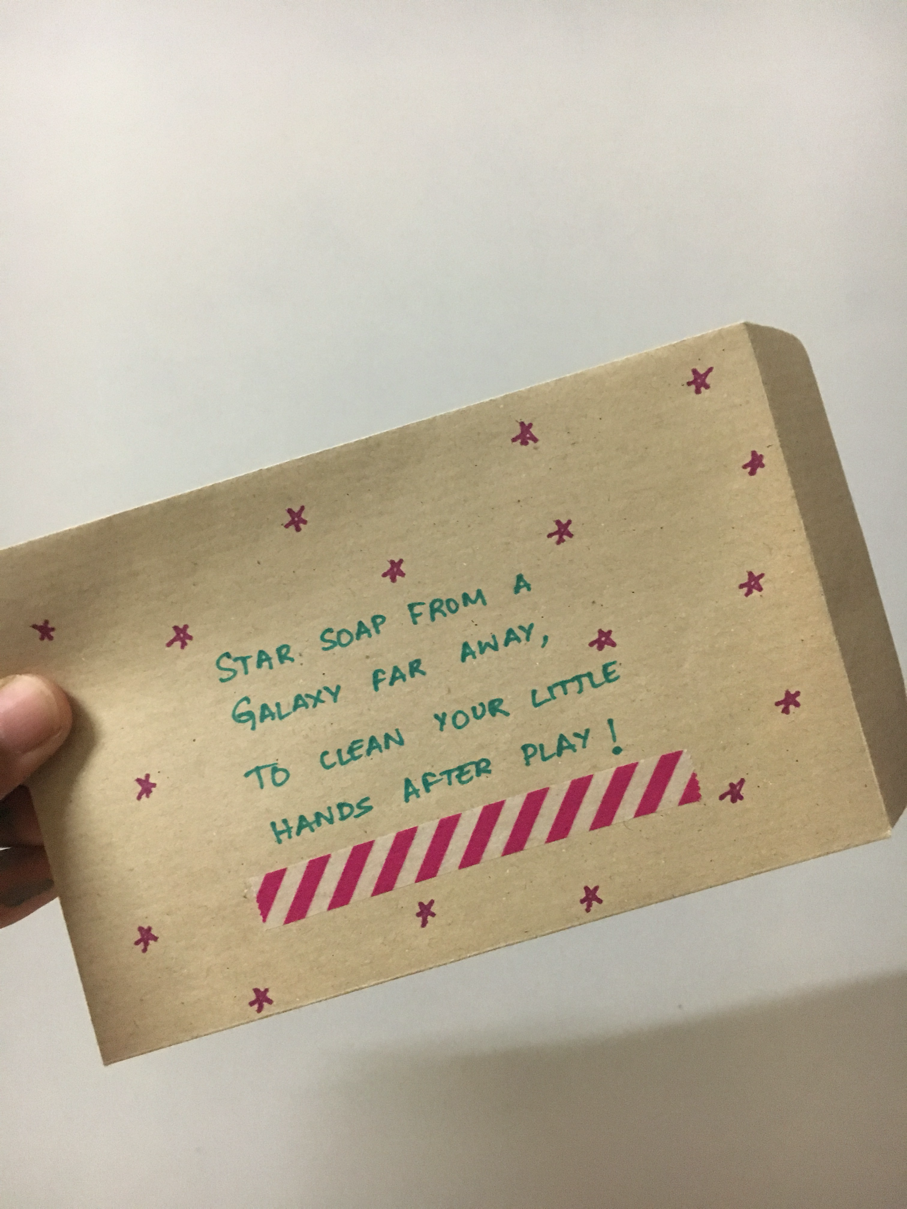 STAR SOAP FROM A
GALAXY FAR AWAY,
TO CLEAN YOUR LITTLE
HANDS AFTER PLAY!